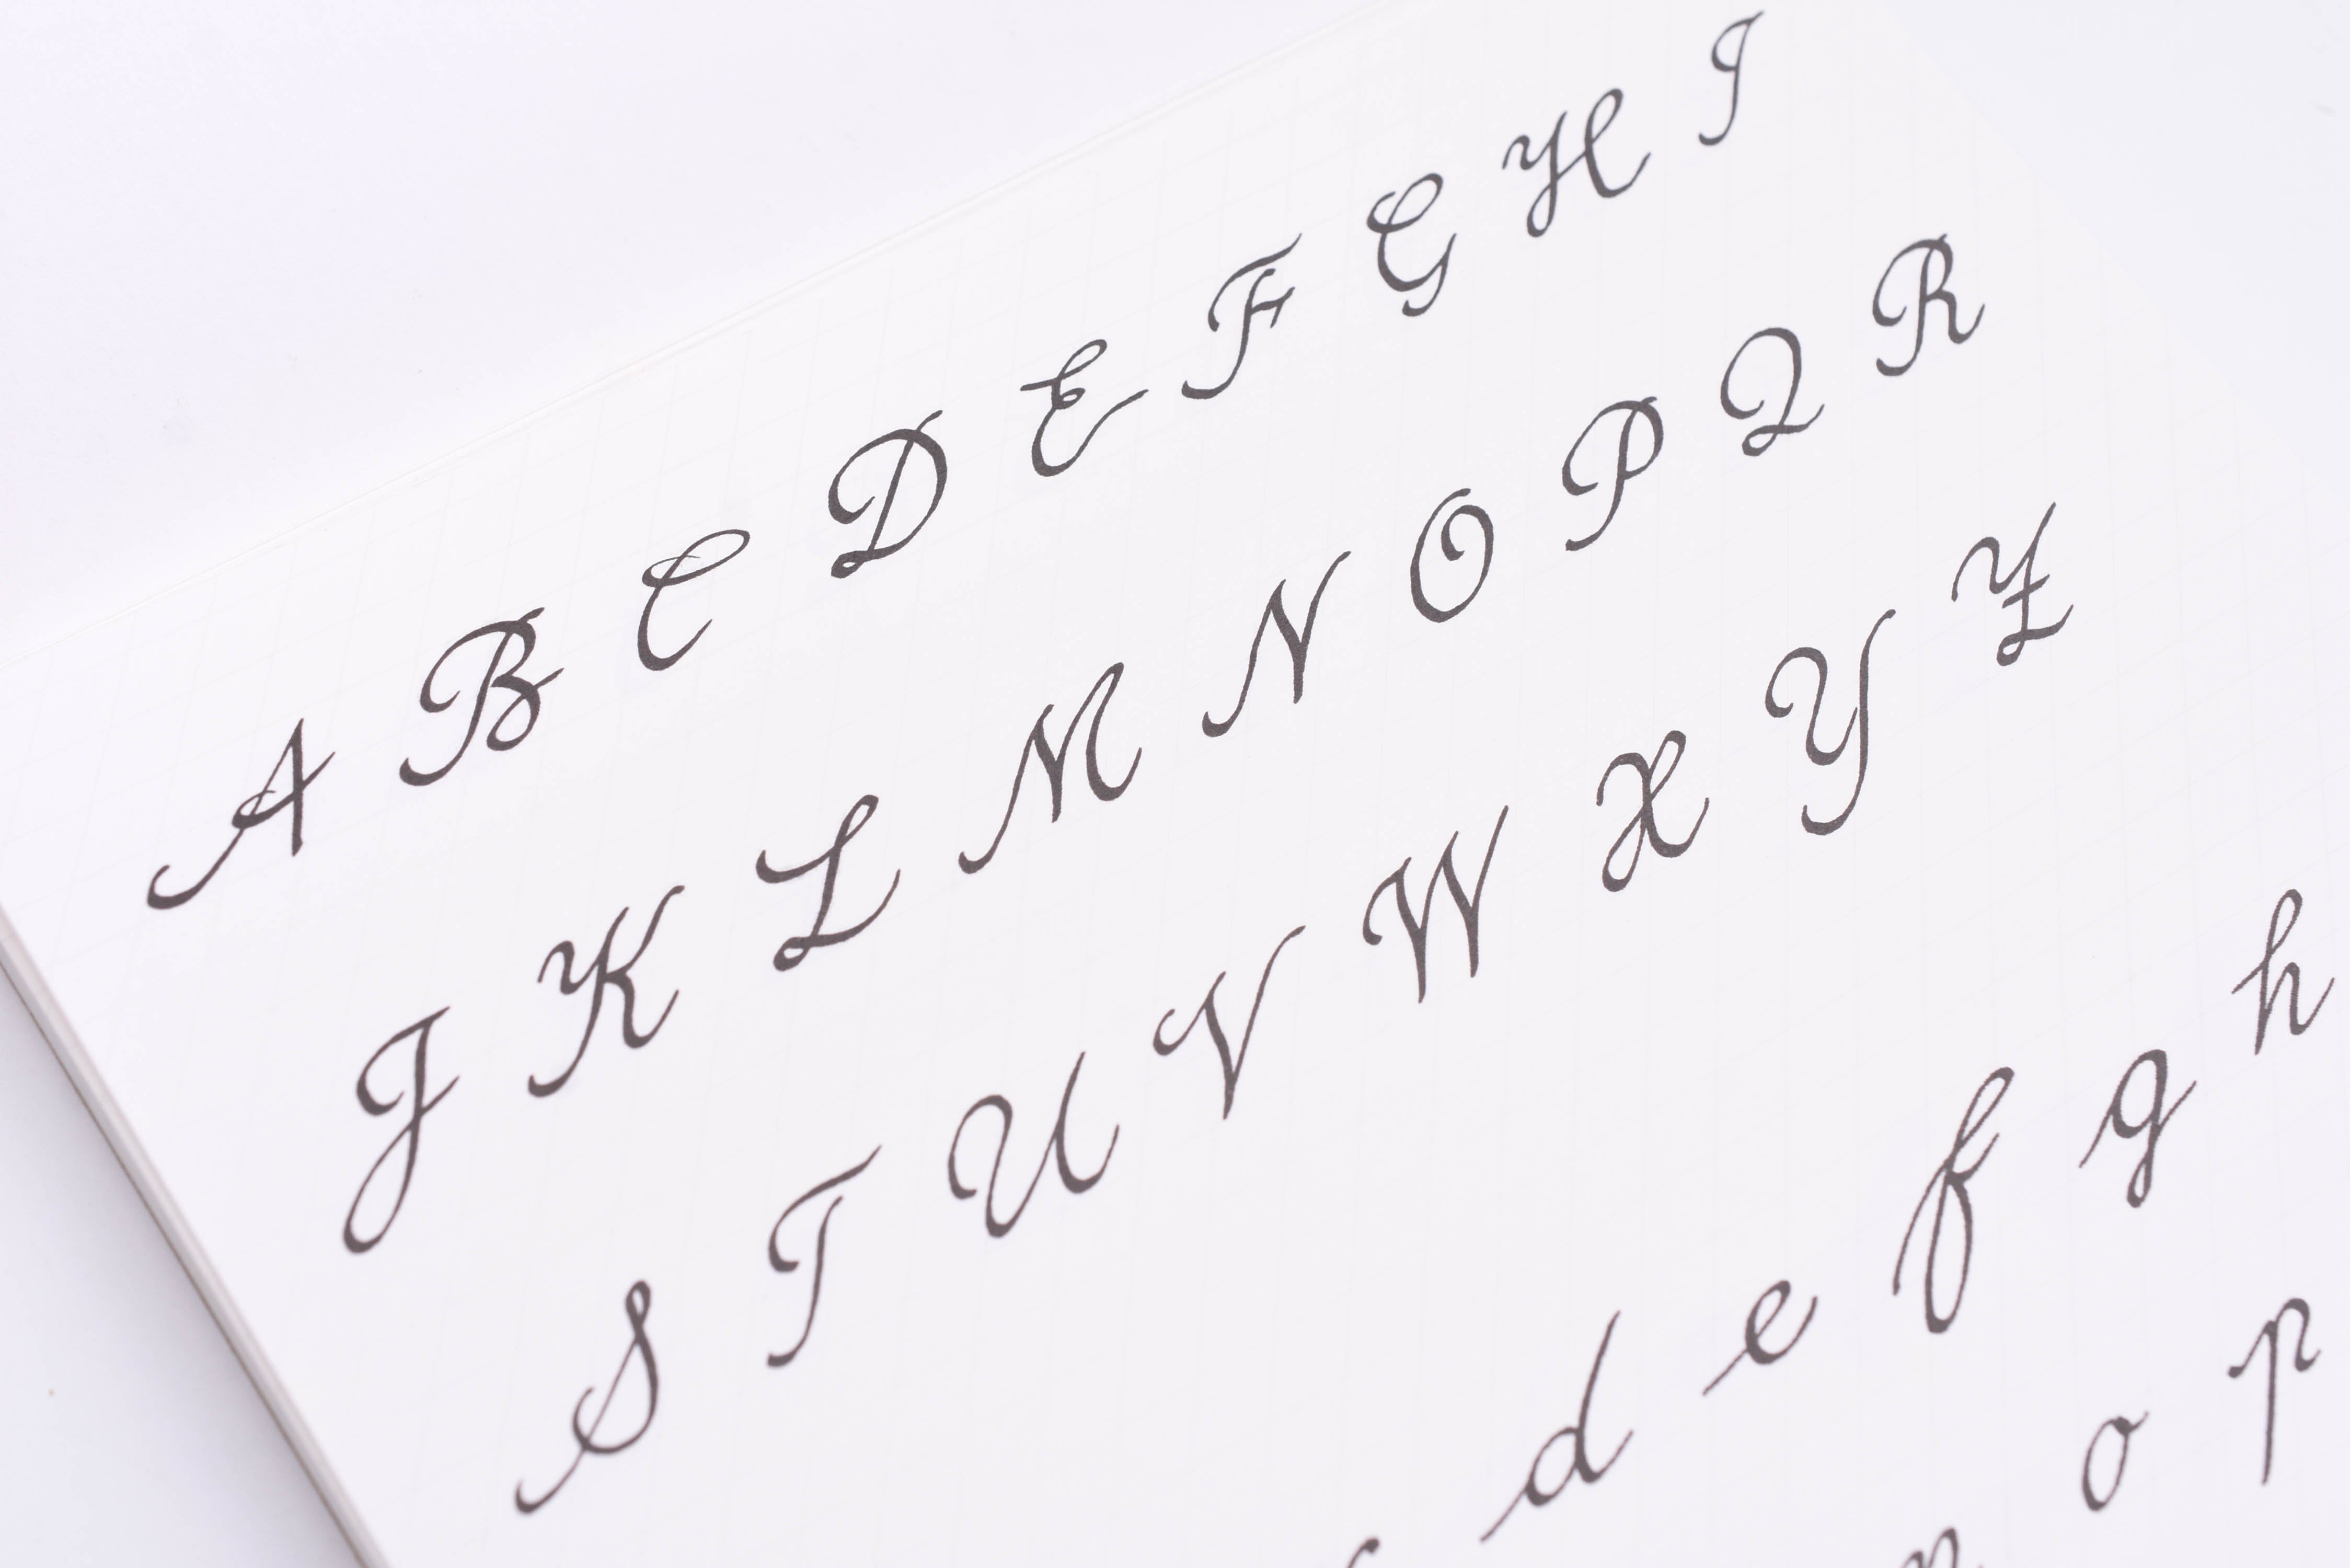 A B C D E F G H I
J K L M N O P Q R
S T U V W X Y Z
d e f g h
o p